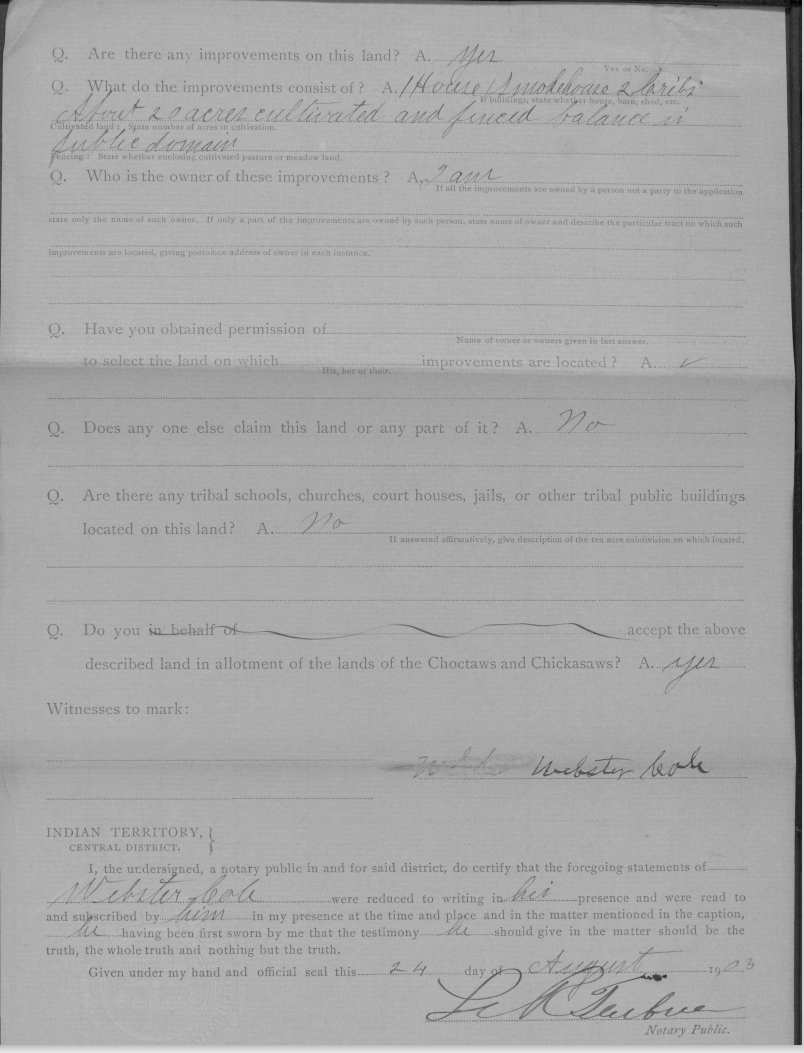 Q. Are there any improvements on this land? A. Yes
Yes or No.
Q. What do the improvements consist of? A. 1 House 1 Smokehouse 2 Cribs
If buildings, state whether house, barn, shed, etc.
About 20 acres cultivated and fenced balance is
Cultivated land: State number of acres in cultivation.
public domain
Fencing: State whether enclosing cultivated pasture or meadow land.
Q. Who is the owner of these improvements? A. I am
If all the improvements are owned by a person not a party to the application
state only the name of such owner. If only a part of the improvements are owned by such person, state name of owner and describe the particular tract on which such
improvements are located, giving postoffice address of owner in each instance.
Q. Have you obtained permission of
Name of owner or owners given in last answer.
to select the land on which improvements are located? A. ✓
His, her or their.
Q. Does any one else claim this land or any part of it? A. No
Q. Are there any tribal schools, churches, court houses, jails, or other tribal public buildings
located on this land? A. No
If answered affirmatively, give description of the ten acre subdivision on which located.
Q. Do you in behalf of accept the above
described land in allotment of the lands of the Choctaws and Chickasaws? A. yes
Witnesses to mark:
Webster Cole
INDIAN TERRITORY,
CENTRAL DISTRICT.
I, the undersigned, a notary public in and for said district, do certify that the foregoing statements of
Webster Cole were reduced to writing in his presence and were read to
and subscribed by him in my presence at the time and place and in the matter mentioned in the caption,
he having been first sworn by me that the testimony he should give in the matter should be the
truth, the whole truth and nothing but the truth.
Given under my hand and official seal this 24 day of August 1903
Notary Public.